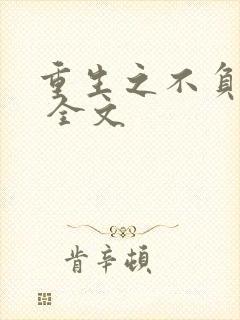 重生之不负
全文
肯辛顿